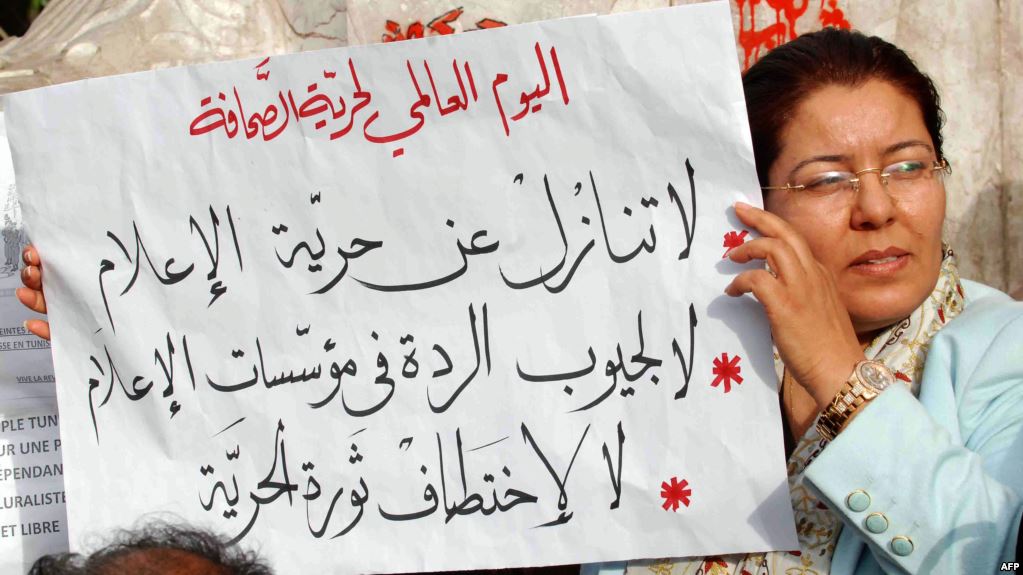 اليوم العالمي لحريّة الصَّحافة
* لا تنازُلْ عن حريّة الإعلام
* لا لجيوب الردة في مؤسّسات الإعلاَم
* لا لإختطافْ ثَورة الحريَّة
SSE EN TUNIS
VIVE LA REV
PLE TUN
UR UNE P
ÉPENDAN
LURALISTE
ET LIBRE
AFP